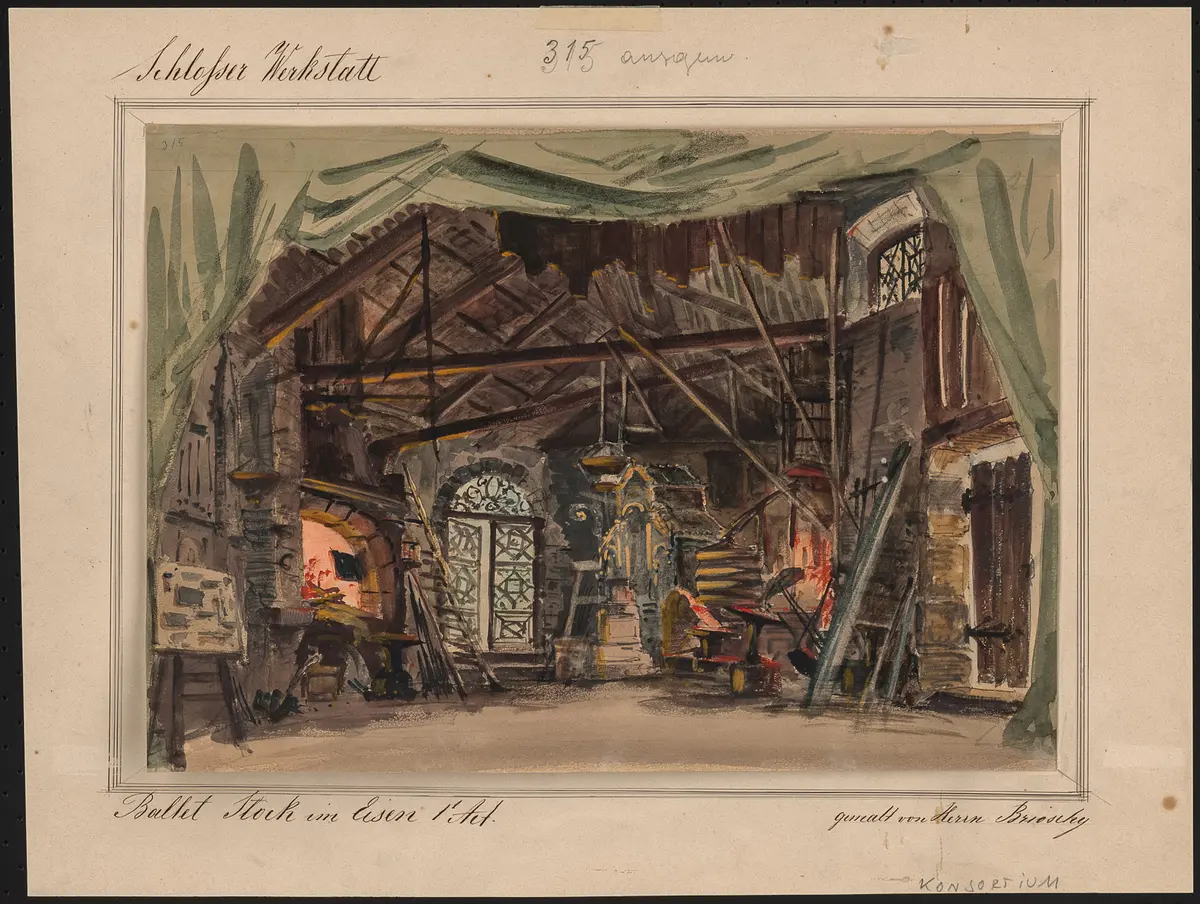 Schlosser Werkstatt
315
315
Ballet Stock im Eisen 1r Act.
gemalt von Herrn Brioschy
KONSORTIUM